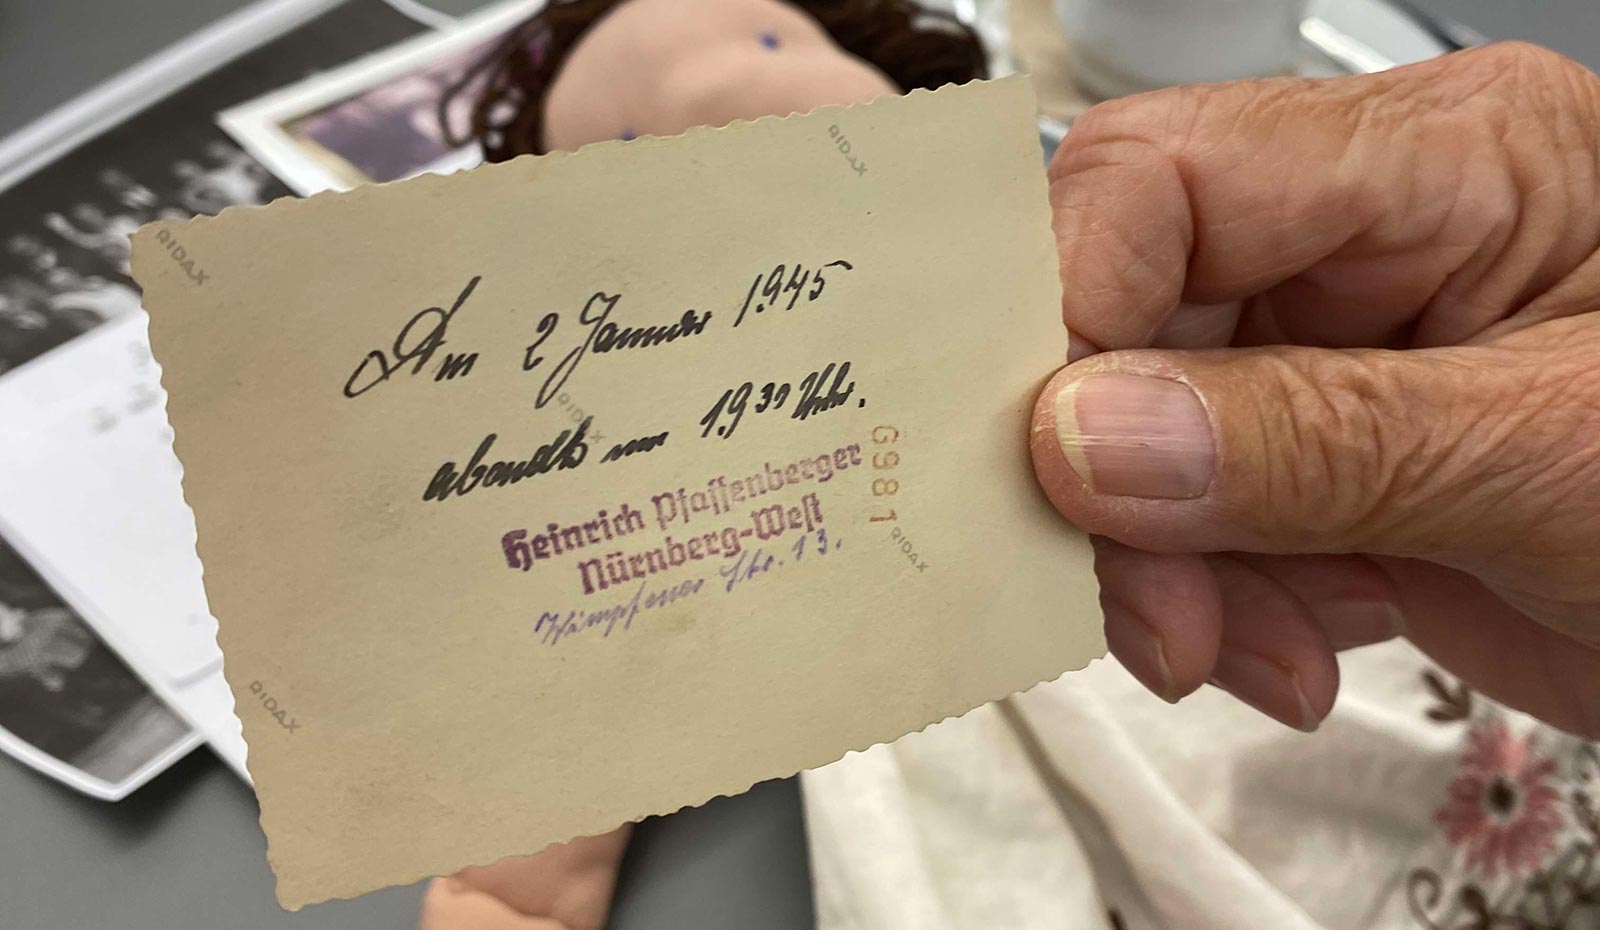 RIDAX
RIDAX
Am 2 Januar 1945
RIDAX
abends um 19³⁰ Uhr.
Heinrich Pfaffenberger
Nürnberg-West
Wimpfener Str. 13.
G981
RIDAX
RIDAX